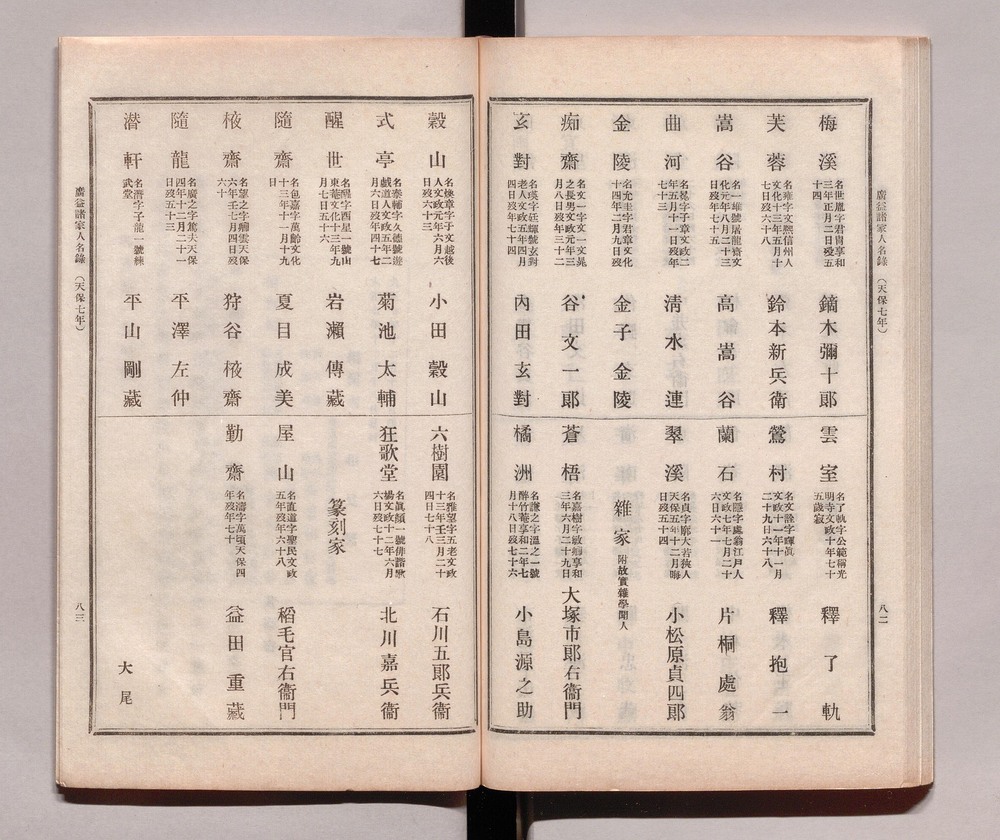 廣益諸家人名錄（天保七年）
八二
梅溪
名世胤字君冑享和
三年正月二日歿五
十四
鏑木彌十郞
芙蓉
名雍字文熙信州人
文化十三年五月十
七日歿六十八
鈴木新兵衛
嵩谷
名一雄號屠龍齋文
化元年八月二十三
日歿年七十五
高嵩谷
曲河
年五月十一日歿年
七十三
淸水連
金陵
名允圭字君章文化
十四年二月九日歿
金子金陵
痴齋
名文一字文一文晁
之長男文政元年三
月八日歿年三十二
谷文一郞
玄對
名瑛字廷輝號玄對
老人文政五年四月
四日歿年七十四
內田玄對
雲室
名了軌字公範稱光
明寺文政十年七十
五歲寂
釋了軌
鶯村
名文詮字暉眞
文政十一年十一月
二十九日六十八
釋抱一
蘭石
名隱字處翁江戶人
文政七年七月二十
六日六十一
片桐處翁
翠溪
名貞字廓大若狹人
天保五年十二月晦
日歿五十四
小松原貞四郞
雜家
附故實雜學聞人
蒼梧
名嘉樹字敏卿享和
三年六月二十九日
大塚市郞右衞門
橘洲
名謙之字溫之一號
醉竹菴享和二年七
月十八日歿七十六
小島源之助
穀山
名㮤章字子文越後
人文政元年六月六
日歿六十三
小田穀山
式亭
名泰輔字久德號遊
戲道人文政五年二
月六日歿年四十七
菊池太輔
醒世
名醒字酉星一號山
東菴文化十三年九
月七日五十六
岩瀨傳藏
隨齋
名包嘉字萬齡文化
十三年十一月十九
日
夏目成美
棭齋
名望之字卿雲天保
六年壬七月四日歿
六十
狩谷棭齋
隨龍
名廣之字篤夫天保
四年十二月二十一
日歿五十三
平澤左仲
潛軒
名潛字子龍一號練
武堂
平山剛藏
六樹園
名雅望字五老文政
十三年壬三月二十
四日七十八
石川五郞兵衞
狂歌堂
名眞顏一號俳諧歌
場文政十二年六月
六日歿七十七
北川嘉兵衞
篆刻家
屋山
名直道字聖民文政
五年歿年六十八
稻毛官右衞門
勤齋
名濤字萬頃天保四
年歿年七十
益田重藏
大尾
廣益諸家人名錄（天保七年）
八三